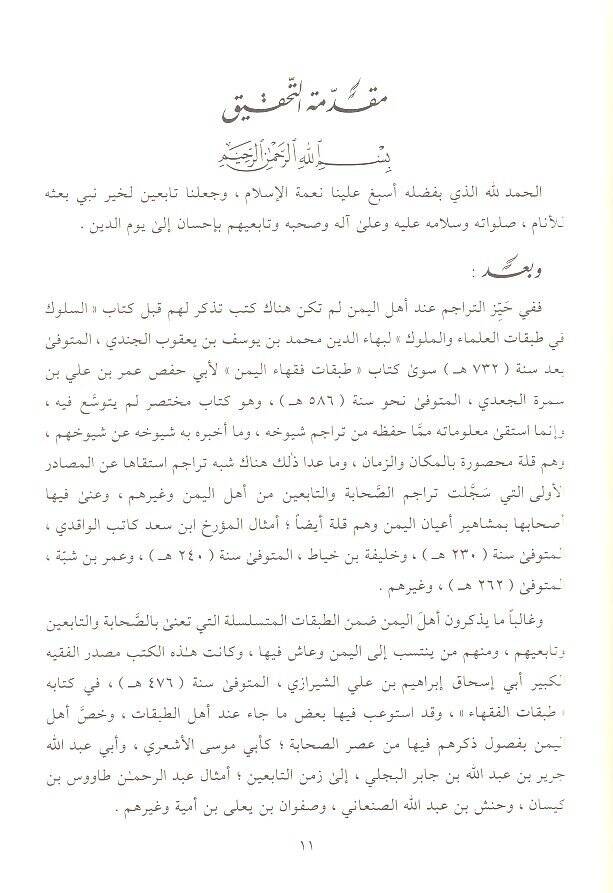 مقدّمة التّحقيق
بِسْمِ ٱللهِ ٱلرَّحْمٰنِ ٱلرَّحِيْمِ
الحمد لله الذي بفضله أسبغ علينا نعمة الإسلام ، وجعلنا تابعين لخير نبي بعثه
للأنام ، صلواته وسلامه عليه وعلىٰ آله وصحبه وتابعيهم بإحسان إلىٰ يوم الدين .
وبعـد :
ففي حَيِّز التراجم عند أهل اليمن لم تكن هناك كتب تذكر لهم قبل كتاب « السلوك
في طبقات العلماء والملوك » لبهاء الدين محمد بن يوسف بن يعقوب الجندي ، المتوفىٰ
بعد سنة ( ٧٣٢ هـ ) سوىٰ كتاب « طبقات فقهاء اليمن » لأبي حفص عمر بن علي بن
سمرة الجعدي ، المتوفىٰ نحو سنة ( ٥٨٦ هـ ) ، وهو كتاب مختصر لم يتوسَّع فيه ،
وإنما استقىٰ معلوماته ممَّا حفظه من تراجم شيوخه ، وما أخبره به شيوخه عن شيوخهم ،
وهم قلة محصورة بالمكان والزمان ، وما عدا ذٰلك هناك شبه تراجم استقاها عن المصادر
الأولى التي سَجَّلت تراجم الصَّحابة والتابعين من أهل اليمن وغيرهم ، وعنىٰ فيها
أصحابها بمشاهير أعيان اليمن وهم قلة أيضاً ؛ أمثال المؤرخ ابن سعد كاتب الواقدي ،
لمتوفىٰ سنة ( ٢٣٠ هـ ) ، وخليفة بن خياط ، المتوفىٰ سنة ( ٢٤٠ هـ ) ، وعمر بن شبّة ،
لمتوفىٰ ( ٢٦٢ هـ ) ، وغيرهم .
وغالباً ما يذكرون أهلَ اليمن ضمن الطبقات المتسلسلة التي تعنىٰ بالصَّحابة والتابعين
وتابعيهم ، ومنهم من ينتسب إلى اليمن وعاش فيها ، وكانت هـٰذه الكتب مصدر الفقيه
لكبير أبي إسحاق إبراهيم بن علي الشيرازي ، المتوفىٰ سنة ( ٤٧٦ هـ ) ، في كتابه
« طبقات الفقهاء » ، وقد استوعب فيها بعض ما جاء عند أهل الطبقات ، وخصَّ أهل
ليمن بفصول ذكرهم فيها من عصر الصحابة ؛ كأبي موسى الأشعري ، وأبي عبد الله
جرير بن عبد الله بن جابر البجلي ، إلىٰ زمن التابعين ؛ أمثال عبد الرحمـٰن طاووس بن
كيسان ، وحنش بن عبد الله الصنعاني ، وصفوان بن يعلى بن أمية وغيرهم .
١١